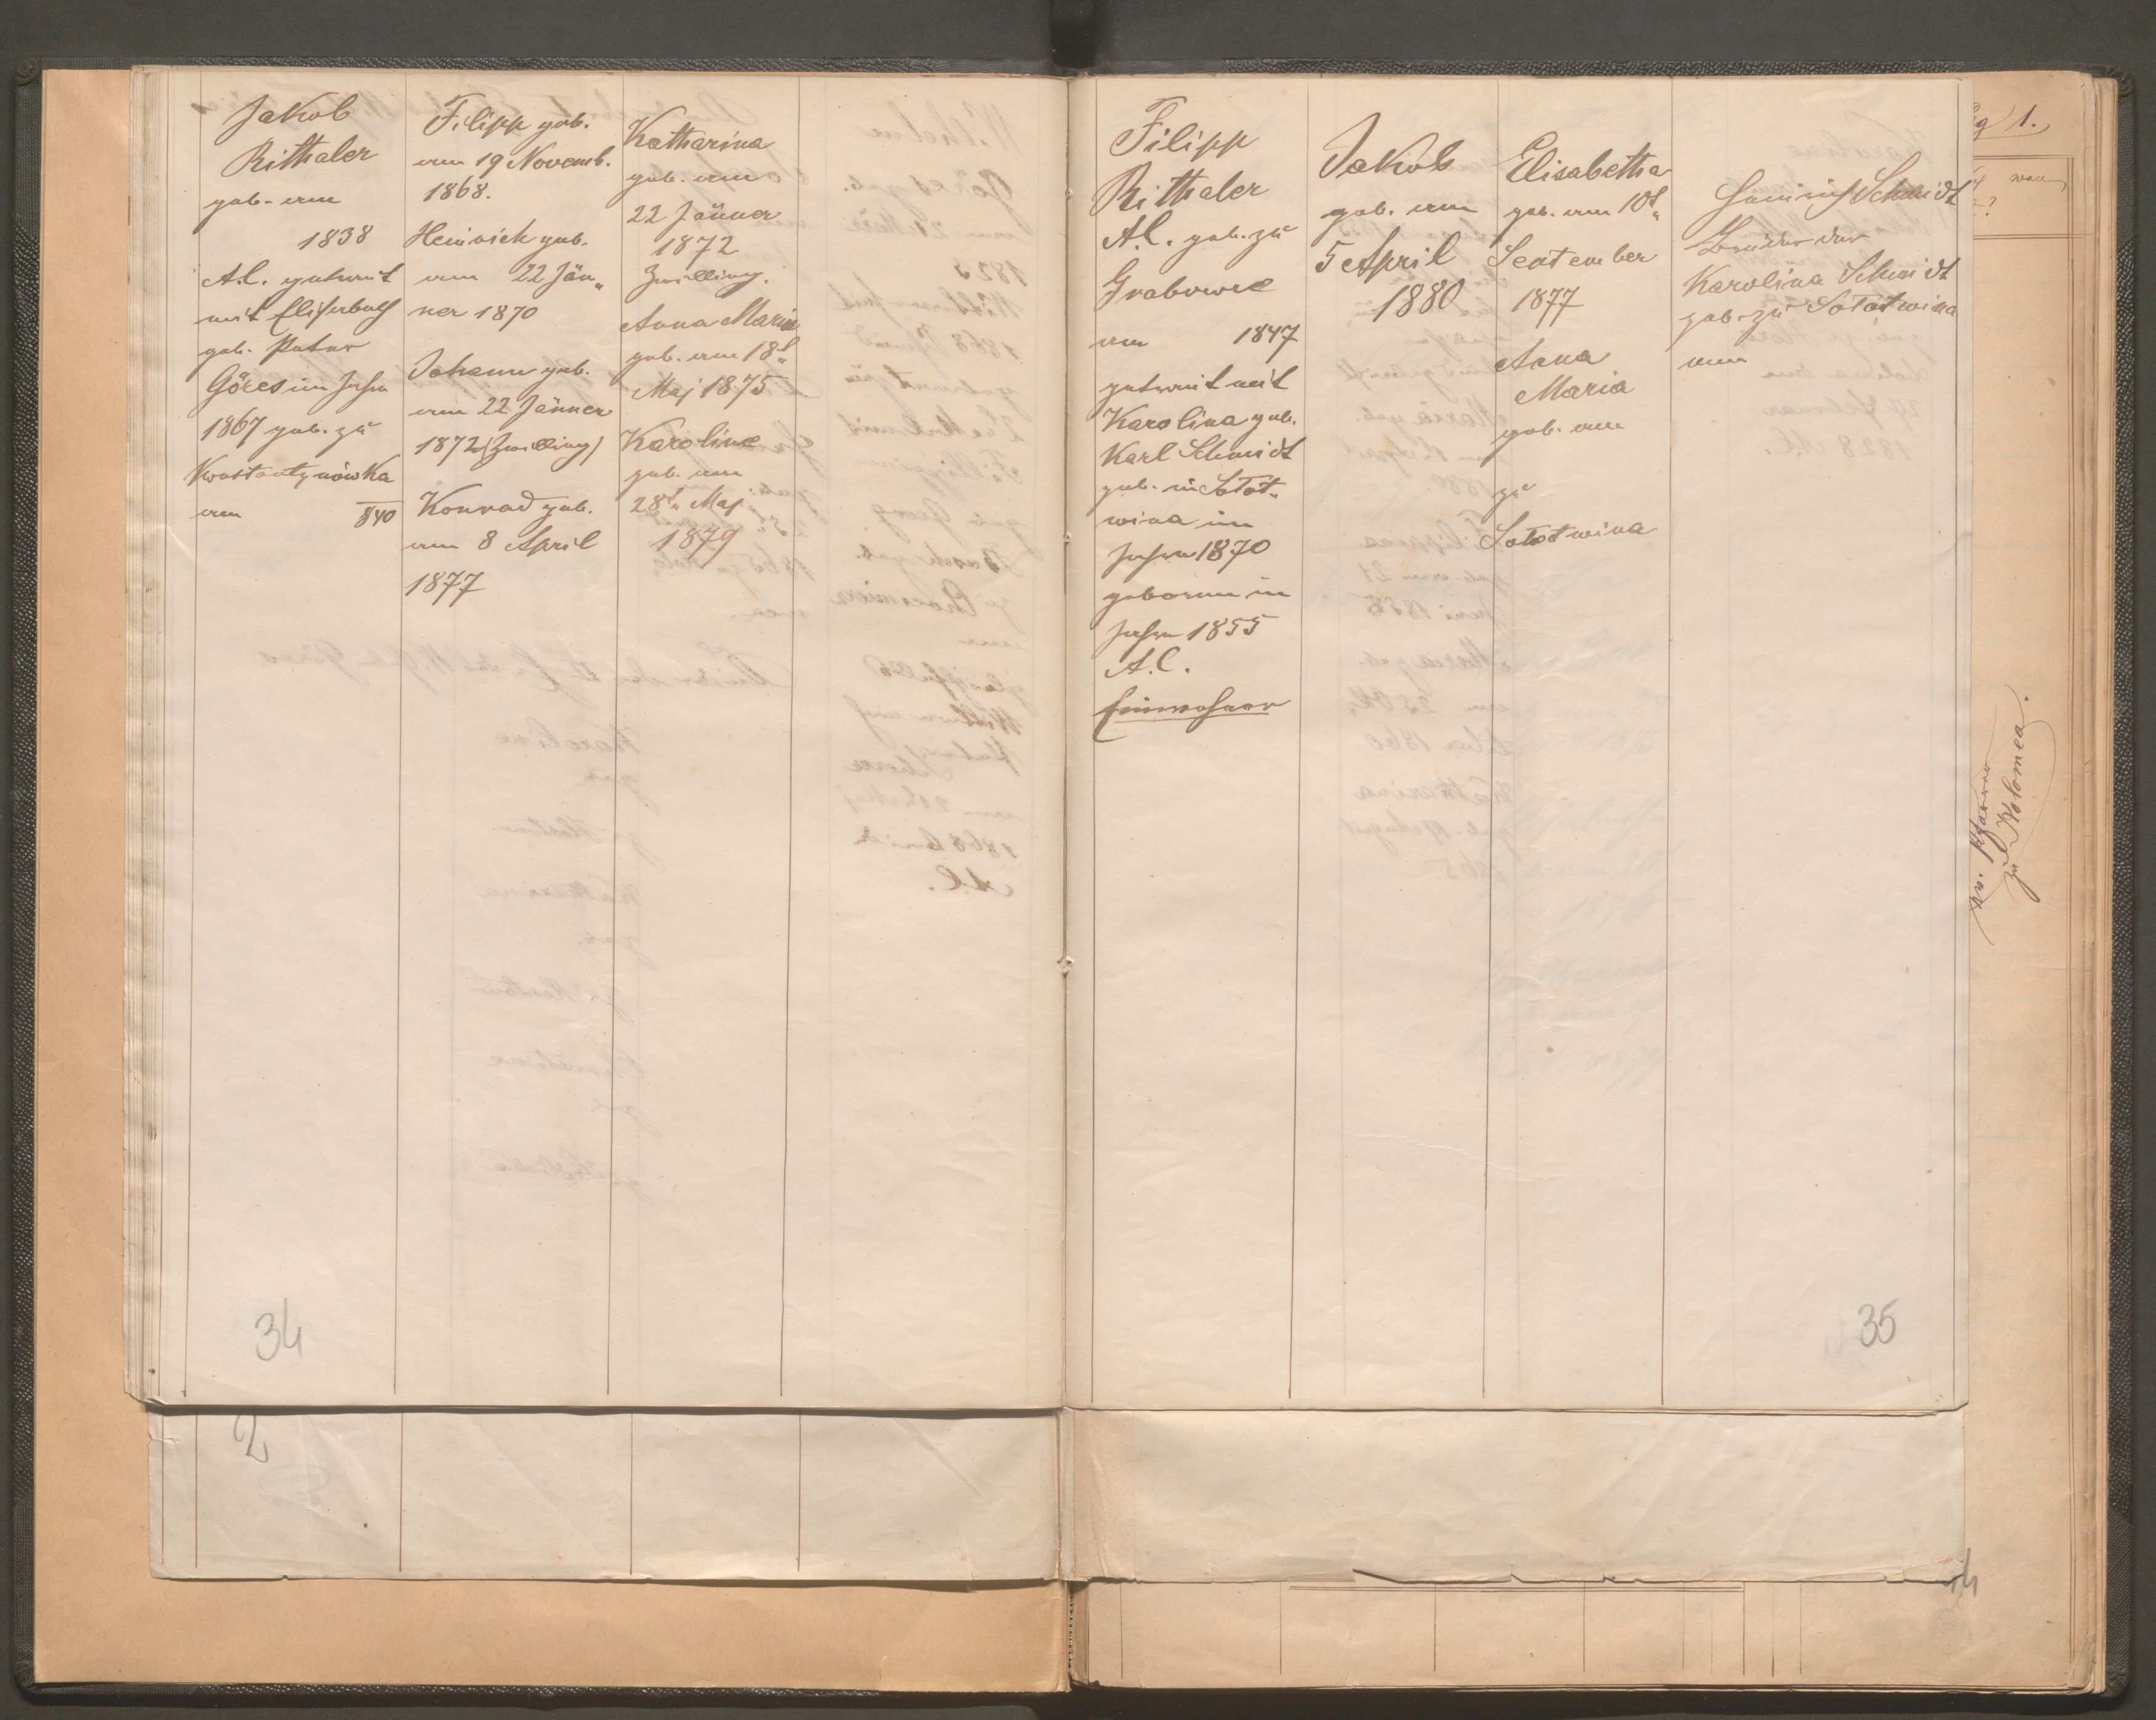 Jakob
Rithaler
geb. am
1838
A.C. getraut
mit Elisabeth
geb. Peter
Göres im Jahre
1867 geb. zu
Konstantynówka
am 840
Filipp geb.
am 19 Novemb.
1868.
Heinrich geb.
am 22 Jän„
ner 1870
Johann geb.
am 22 Jänner
1872 (Zwilling)
Konrad geb.
am 8 April
1877
Katharina
geb. am
22 Jänner
1872
Zwilling.
Anna Maria
geb. am 18t„
Maj 1875
Karoline
geb. am
28t„ Maj
1879
34
2
Filipp
Rithaler
A.C. geb. zu
Grabowce
am 1847
getraut mit
Karolina geb.
Karl Schmidt
geb. in Sołot„
wina im
Jahre 1870
geboren im
Jahre 1855
A.C.
Einwohner
Jakob
geb. am
5 April
1880
Elisabetha
geb. am 10t„
September
1877
Anna
Maria
geb. am
zu
Sołotwina
Heinrich Schmidt
Bruder der
Karolina Schmidt
geb. zu Sołotwina
am
35
1.
ev. Pfarrer
zu Kolomea.